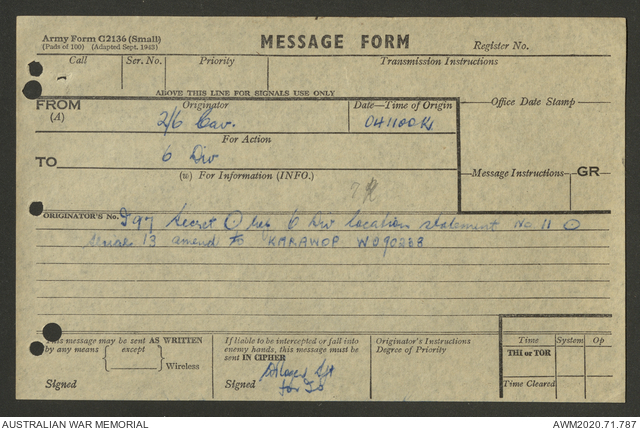 Army Form C2136 (Small)
(Pads of 100) (Adapted Sept. 1942)
MESSAGE FORM
Register No.
Call
Ser. No.
Priority
Transmission Instructions
ABOVE THIS LINE FOR SIGNALS USE ONLY
FROM
(A)
Originator
2/6 Cav.
Date—Time of Origin
041100K
Office Date Stamp
For Action
TO
6 Div
(w) For Information (INFO.)
Message Instructions
GR
ORIGINATOR'S No.
I 97 Secret O ref 6 Div location statement No. 11 O
serial 13 amend to KARAWOP
This message may be sent AS WRITTEN
by any means
except
Wireless
Signed
If liable to be intercepted or fall into
enemy hands, this message must be
sent IN CIPHER
Signed
for IO
Originator's Instructions
Degree of Priority
Time
System
Op
THI or TOR
Time Cleared
AUSTRALIAN WAR MEMORIAL
AWM2020.71.787